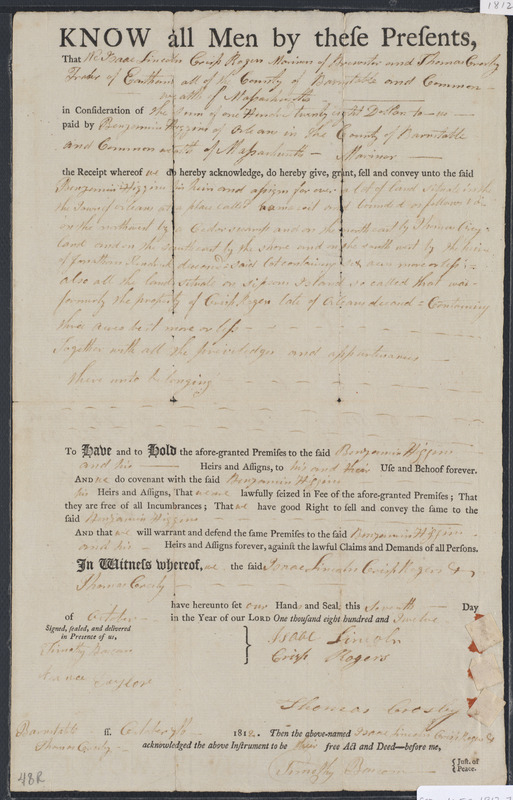 1812
KNOW all Men by theſe Preſents,
That We Isaac Lincoln Crisp Rogers Mariners of Brewster and Thomas Crosby
Trader of Eastham all of the County of Barnstable and Common-
wealth of Massachusetts
in Conſideration of the Sum of one Hundred twenty eight Dollars to us
paid by Benjamin Higgins of Orleans in the County of Barnstable
and Commonwealth of Massachusetts - Mariner
the Receipt whereof we do hereby acknowledge, do hereby give, grant, ſell and convey unto the ſaid
Benjamin Higgins his heirs and assigns for ever a lot of land situate in the
the Town of orleans at a place called and bounded as follows
on the northward by a Cedar swamp and on the by Thomas
land and on the by the shore and on the by the heirs
of Jonathan deceased said lot containing six acres more or less
also all the land situate on Island so called that was
formerly the property of Crisp Rogers late of Orleans deceased Containing
three acres be it more or less
Together with all the priviledges and appurtenances
there unto belonging
To Have and to Hold the afore-granted Premiſes to the ſaid Benjamin Higgins
and his Heirs and Aſſigns, to his and their Uſe and Behoof forever.
AND we do covenant with the ſaid Benjamin Higgins
his Heirs and Aſſigns, That we are lawfully ſeized in Fee of the afore-granted Premiſes; That
they are free of all Incumbrances; That we have good Right to ſell and convey the ſame to the
ſaid Benjamin Higgins
AND that we will warrant and defend the ſame Premiſes to the ſaid Benjamin Higgins
and his Heirs and Aſſigns forever, againſt the lawful Claims and Demands of all Perſons.
In Witneſs whereof, we the ſaid Isaac Lincoln Crisp Rogers &
Thomas Crosby
have hereunto ſet our Hand and Seal, this Seventh Day
of October in the Year of our LORD One thouſand eight hundred and Twelve
Signed, ſealed, and delivered
in Preſence of us,
Isaac Lincoln
Timothy Bacon
Crisp Rogers
Taylor
Thomas Crosby
Barnstable ſſ. 1812. Then the above-named Isaac Lincoln Crisp Rogers &
Thomas Crosby acknowledged the above Inſtrument to be their free Act and Deed—before me,
Timothy Bacon { Juſt. of Peace.
48R